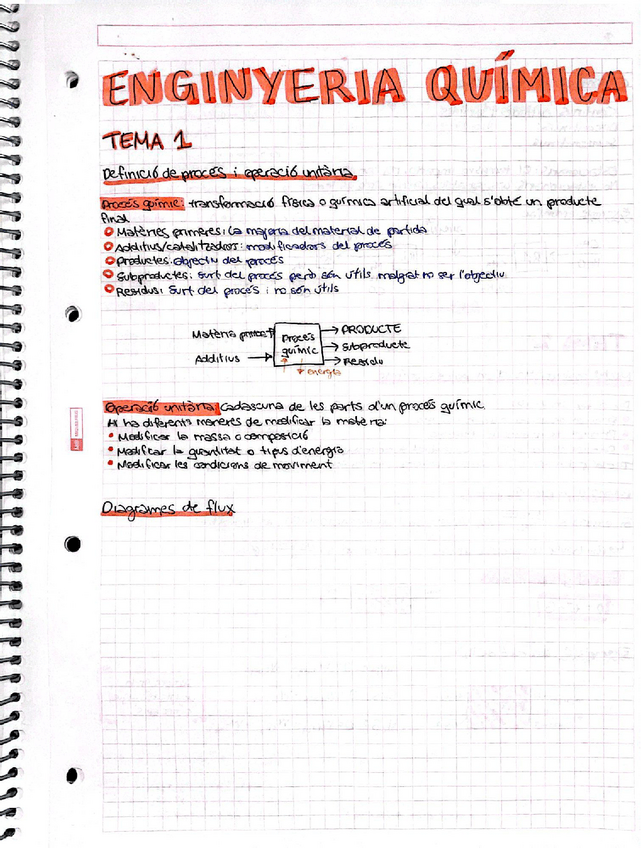 ENGINYERIA QUÍMICA
TEMA 1
Definició de procés i operació unitària
Procés químic: transformació física o química artificial del qual s'obté un producte
final
Matèries primeres: la majoria del material de partida
Additius/catalitzadors: modificadors del procés
Productes: objectiu del procés
Subproductes: surt del procés però són útils malgrat no ser l'objectiu
Residus: surt del procés i no són útils
Matèria primera
Additius
Procés
químic
PRODUCTE
Subproducte
Residu
+ energia
Operació unitària: cadascuna de les parts d'un procés químic.
Hi ha diferents maneres de modificar la matèria:
Modificar la massa o composició
Modificar la quantitat o tipus d'energia
Modificar les condicions de moviment
Diagrames de flux